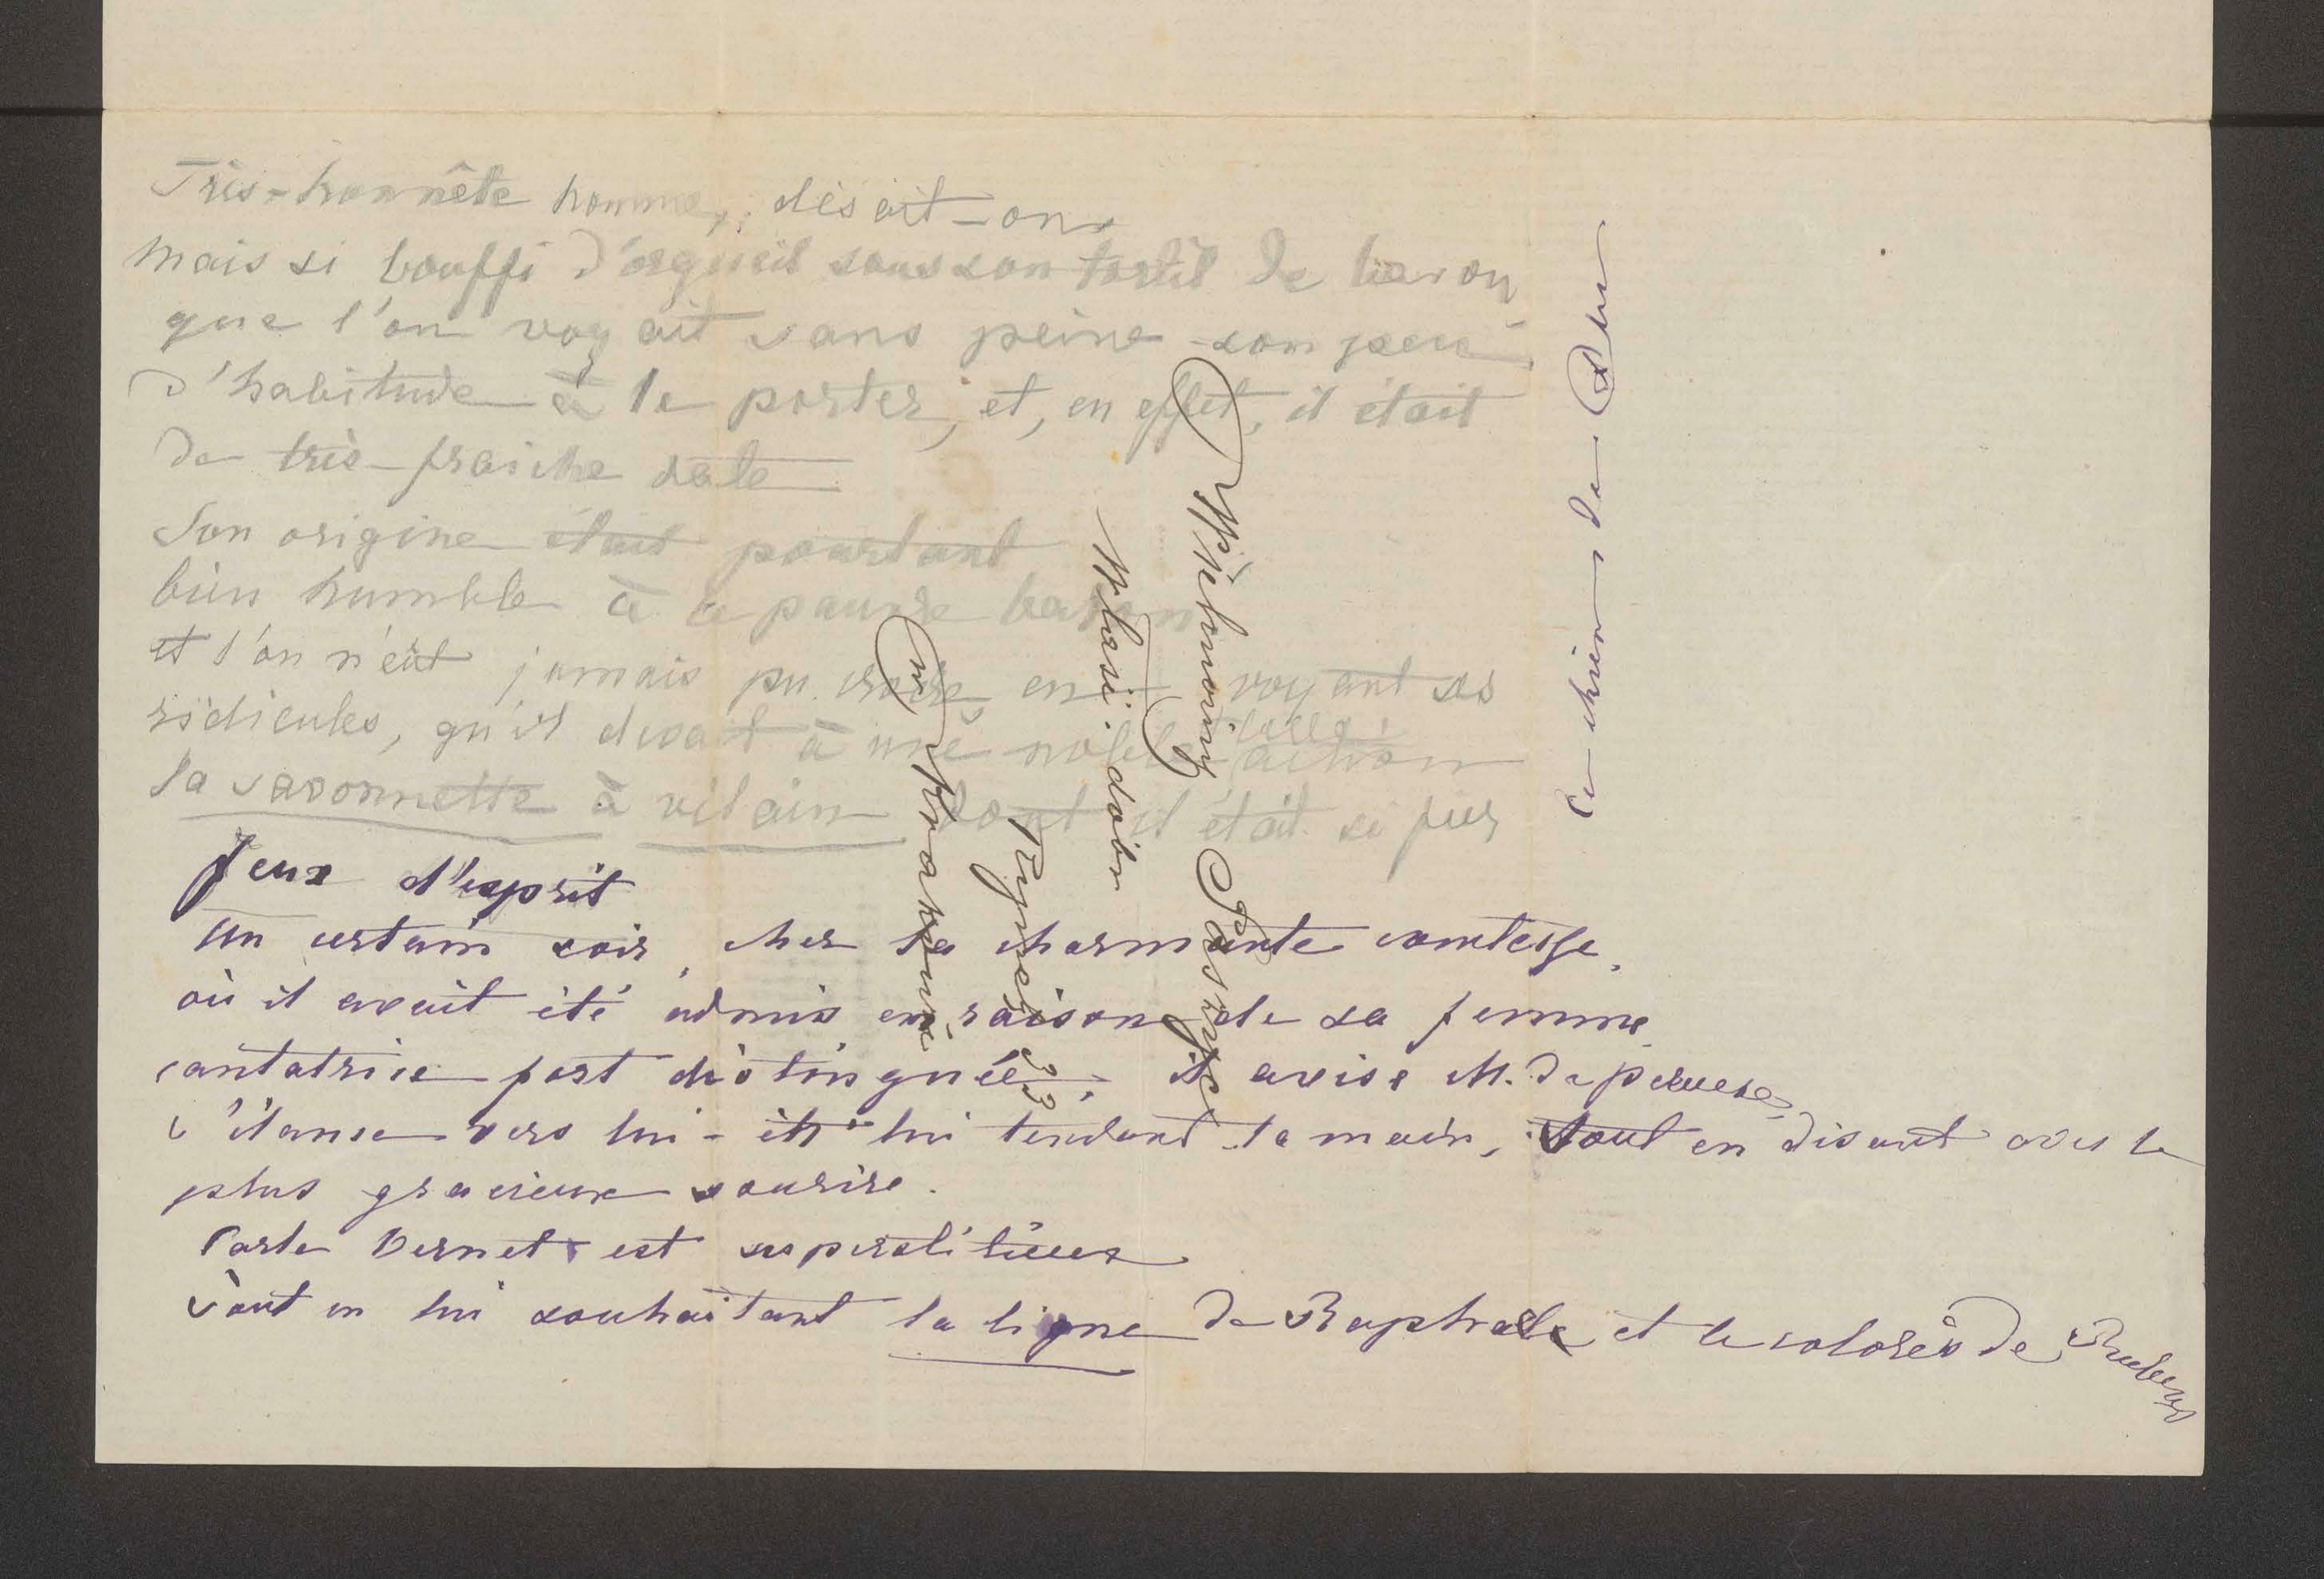 Très-honnête homme, disait-on
Mais si bouffi d'orgueil sous son tortil de baron
que l'on voyait sans peine son peu
d'habitude à le porter, et, en effet, il était
de très-fraîche date
Son origine était pourtant
bien humble à ce pauvre baron
et l'on n'eût jamais pu croire en voyant ses
ridicules, qu'il devait à une noble action
la savonnette à vilain dont il était si fier
Jeux d'esprit
Un certain soir, chez la charmante comtesse,
où il avait été admis en raison de sa femme
cantatrice fort distinguée, il avise M. de
s'élance vers lui - en lui tendant la main, tout en disant avec le
plus gracieux sourire.
Carle Vernet est superstitieux
Tout en lui souhaitant la ligne de Raphaele et le coloris de Rubens
Wielmożny Paszyc
Właści. dobr
Rynek 33
w Krakowie
Ce chien de